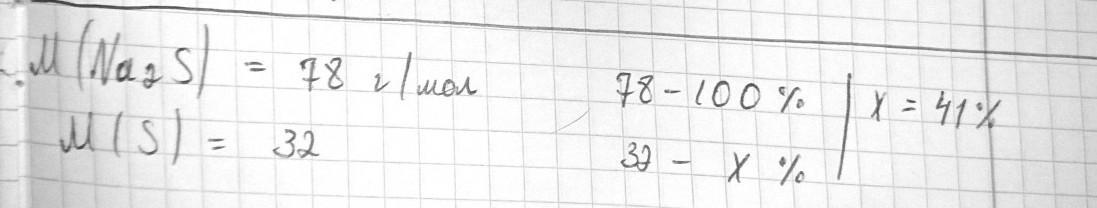 M(Na2S) = 78 г/мол
M(S) = 32
78 - 100 %
32 - x %
x = 41%